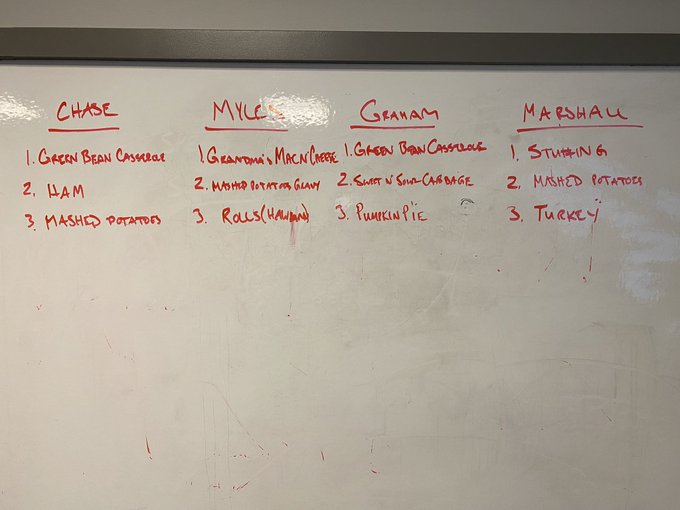 CHASE
1. GREEN BEAN CASSEROLE
2. HAM
3. MASHED POTATOES
MYLES
1. GRANDMA'S MAC N CHEESE
2. MASHED POTATOES GRAVY
3. ROLLS (HAWIAN)
GRAHAM
1. GREEN BEAN CASSEROLE
2. SWEET N' SOUR CABBAGE
3. PUMPKIN PIE
MARSHALL
1. STUFFING
2. MASHED POTATOES
3. TURKEY